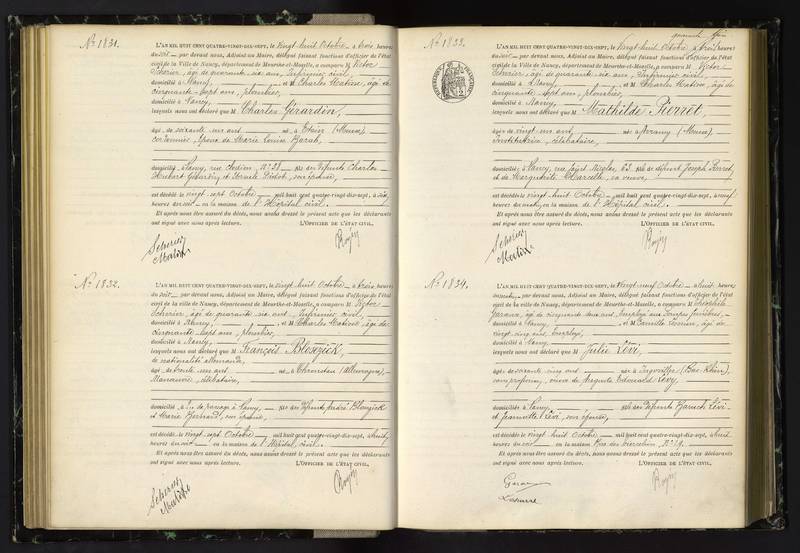 N° 1831.
L'AN MIL HUIT CENT QUATRE-VINGT-DIX-SEPT, le vingt-huit Octobre, à trois heures
du soir, par devant nous, Adjoint au Maire, délégué faisant fonctions d'officier de l'état
civil de la Ville de Nancy, département de Meurthe-et-Moselle, a comparu M Victor
Scherier, âgé de quarante-six ans, Infirmier civil,
domicilié à Nancy, et M Charles Mative, âgé de
cinquante-sept ans, plombier,
domicilié à Nancy,
lesquels nous ont déclaré que M Charles Gérardin,
âgé de soixante-un ans né à Etain (Meuse),
cordonnier, époux de Marie Louise
domicilié à Nancy, rue N° 28 fils des défunts Charles
Hubert Gérardin et Didot, son épouse,
est décédé le vingt-sept Octobre mil huit cent quatre-vingt-dix-sept, à six
heures du soir en la maison de l'Hôpital civil.
Et après nous être assuré du décès, nous avons dressé le présent acte que les déclarants
ont signé avec nous après lecture. L'OFFICIER DE L'ÉTAT CIVIL,
N° 1832.
L'AN MIL HUIT CENT QUATRE-VINGT-DIX-SEPT, le vingt-huit Octobre, à trois heures
du soir, par devant nous, Adjoint au Maire, délégué faisant fonctions d'officier de l'état
civil de la ville de Nancy, département de Meurthe-et-Moselle, a comparu M Victor
Scherier, âgé de quarante-six ans, Infirmier civil,
domicilié à Nancy, et M Charles Mative, âgé de
cinquante-sept ans, plombier,
domicilié à Nancy,
lesquels nous ont déclaré que M François
de nationalité allemande,
âgé de trente-un ans né à (Allemagne),
célibataire,
domicilié à de passage à Nancy, fils des défunts André
et Marie son épouse,
est décédé le vingt-sept Octobre, mil huit cent quatre-vingt-dix-sept, à huit
heures du soir en la maison de l'Hôpital civil.
Et après nous être assuré du décès, nous avons dressé le présent acte que les déclarants
ont signé avec nous après lecture. L'OFFICIER DE L'ÉTAT CIVIL,
N° 1833.
L'AN MIL HUIT CENT QUATRE-VINGT-DIX-SEPT, le vingt-huit Octobre, à trois heures
du soir, par devant nous, Adjoint au Maire, délégué faisant fonctions d'officier de l'état
civil de la Ville de Nancy, département de Meurthe-et-Moselle, a comparu M Victor
Scherier, âgé de quarante-six ans, Infirmier civil,
domicilié à Nancy, et M Charles Mative, âgé de
cinquante-sept ans, plombier,
domicilié à Nancy,
lesquels nous ont déclaré que M Mathilde Pierret,
âgée de vingt-un ans née à Avrany (Meuse),
Institutrice, célibataire,
domiciliée à Nancy, rue Saint Nicolas, 63 fille de défunt Joseph Pierret
et de Marguerite sa veuve,
est décédée le vingt-huit Octobre, mil huit cent quatre-vingt-dix-sept, à neuf
heures du matin, en la maison de l'Hôpital civil.
Et après nous être assuré du décès, nous avons dressé le présent acte que les déclarants
ont signé avec nous après lecture. L'OFFICIER DE L'ÉTAT CIVIL,
N° 1834.
L'AN MIL HUIT CENT QUATRE-VINGT-DIX-SEPT, le vingt-neuf Octobre, à huit heures
du matin, par devant nous, Adjoint au Maire, délégué faisant fonctions d'officier de l'état
civil de la ville de Nancy, département de Meurthe-et-Moselle, a comparu M
âgé de cinquante-deux ans, Employé aux Pompes funèbres,
domicilié à Nancy, et M Camille âgé de
vingt-cinq ans, Employé,
domicilié à Nancy,
lesquels nous ont déclaré que M Julie Lévi,
âgée de soixante-cinq ans née à Ingwiller (Bas-Rhin),
sans profession, veuve de Auguste Edouard Lévy,
domiciliée à Nancy, fille des défunts Baruch Lévi
et Jeannette Lévi, son épouse,
est décédée le vingt-huit Octobre mil huit cent quatre-vingt-dix-sept, à huit
heures du soir en la maison Rue des N° 19.
Et après nous être assuré du décès, nous avons dressé le présent acte que les déclarants
ont signé avec nous après lecture. L'OFFICIER DE L'ÉTAT CIVIL,